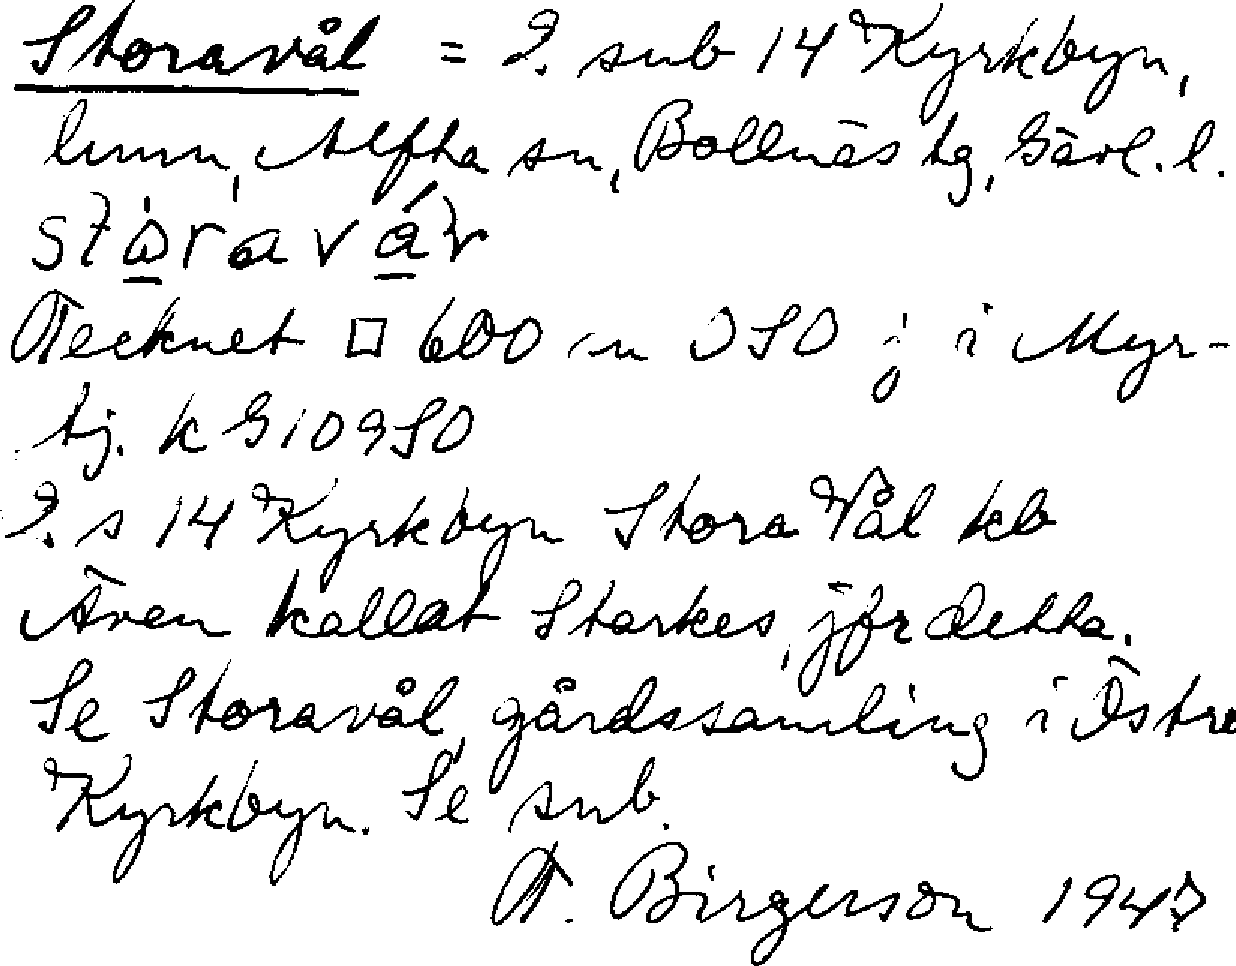 Storavål = 2. sub 14 Kyrkbyn,
lmm, Alfta sn, Bollnäs tg, Gävl. l.
Tecknet □ 600 m OSO j i Myr-
tj. k G109SO
2. s 14 Kyrkbyn Stora Vål kb
Även kallat Starkes, jfr detta.
Se Storavål, gårdssamling i Östre
Kyrkbyn. Se sub.
T. Birgerson 1947